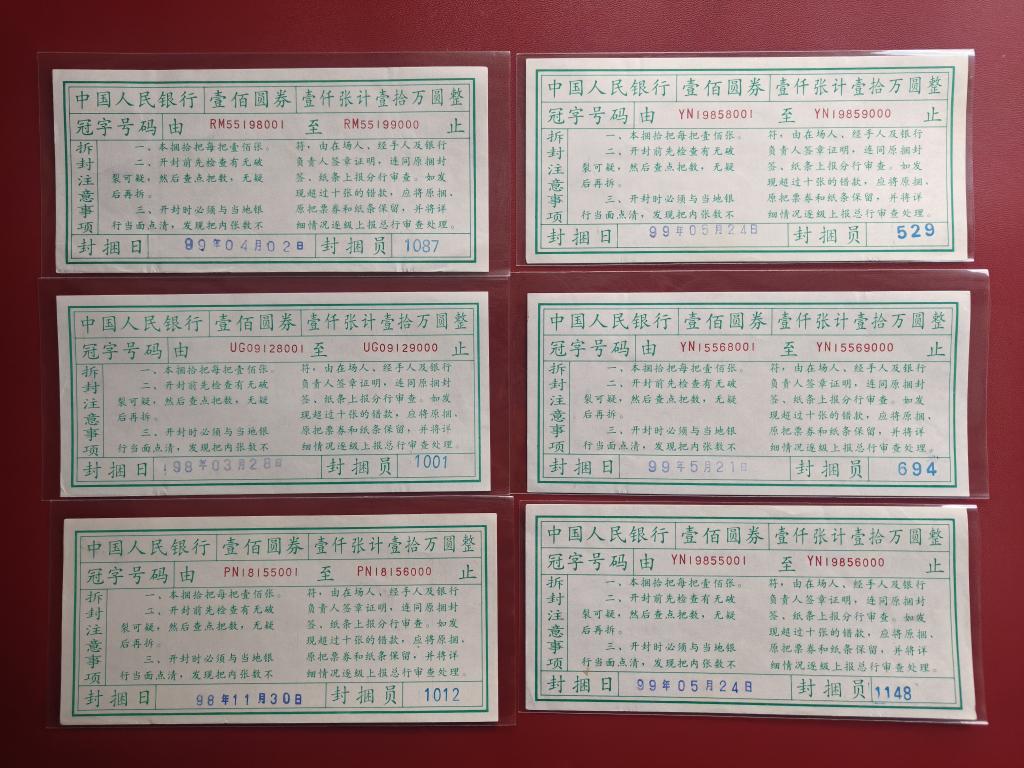 中国人民银行 壹佰圆券 壹仟张计壹拾万圆整
冠字号码 由 RM55198001 至 RM55199000 止
拆封注意事项
一、本捆拾把每把壹佰张。
二、开封前先检查有无破
裂可疑，然后查点把数，无疑
后再拆。
三、开封时必须与当地银
行当面点清，发现把内张数不
符，由在场人、经手人及银行
负责人签章证明，连同原捆封
签、纸条上报分行审查。如发
现超过十张的错款，应将原捆、
原把票券和纸条保留，并将详
细情况逐级上报总行审查处理。
封捆日 99年04月02日 封捆员 1087
中国人民银行 壹佰圆券 壹仟张计壹拾万圆整
冠字号码 由 YN19858001 至 YN19859000 止
拆封注意事项
一、本捆拾把每把壹佰张。
二、开封前先检查有无破
裂可疑，然后查点把数，无疑
后再拆。
三、开封时必须与当地银
行当面点清，发现把内张数不
符，由在场人、经手人及银行
负责人签章证明，连同原捆封
签、纸条上报分行审查。如发
现超过十张的错款，应将原捆、
原把票券和纸条保留，并将详
细情况逐级上报总行审查处理。
封捆日 99年05月24日 封捆员 529
中国人民银行 壹佰圆券 壹仟张计壹拾万圆整
冠字号码 由 UG09128001 至 UG09129000 止
拆封注意事项
一、本捆拾把每把壹佰张。
二、开封前先检查有无破
裂可疑，然后查点把数，无疑
后再拆。
三、开封时必须与当地银
行当面点清，发现把内张数不
符，由在场人、经手人及银行
负责人签章证明，连同原捆封
签、纸条上报分行审查。如发
现超过十张的错款，应将原捆、
原把票券和纸条保留，并将详
细情况逐级上报总行审查处理。
封捆日 98年03月28日 封捆员 1001
中国人民银行 壹佰圆券 壹仟张计壹拾万圆整
冠字号码 由 YN15568001 至 YN15569000 止
拆封注意事项
一、本捆拾把每把壹佰张。
二、开封前先检查有无破
裂可疑，然后查点把数，无疑
后再拆。
三、开封时必须与当地银
行当面点清，发现把内张数不
符，由在场人、经手人及银行
负责人签章证明，连同原捆封
签、纸条上报分行审查。如发
现超过十张的错款，应将原捆、
原把票券和纸条保留，并将详
细情况逐级上报总行审查处理。
封捆日 99年5月21日 封捆员 694
中国人民银行 壹佰圆券 壹仟张计壹拾万圆整
冠字号码 由 PN18155001 至 PN18156000 止
拆封注意事项
一、本捆拾把每把壹佰张。
二、开封前先检查有无破
裂可疑，然后查点把数，无疑
后再拆。
三、开封时必须与当地银
行当面点清，发现把内张数不
符，由在场人、经手人及银行
负责人签章证明，连同原捆封
签、纸条上报分行审查。如发
现超过十张的错款，应将原捆、
原把票券和纸条保留，并将详
细情况逐级上报总行审查处理。
封捆日 98年11月30日 封捆员 1012
中国人民银行 壹佰圆券 壹仟张计壹拾万圆整
冠字号码 由 YN19855001 至 YN19856000 止
拆封注意事项
一、本捆拾把每把壹佰张。
二、开封前先检查有无破
裂可疑，然后查点把数，无疑
后再拆。
三、开封时必须与当地银
行当面点清，发现把内张数不
符，由在场人、经手人及银行
负责人签章证明，连同原捆封
签、纸条上报分行审查。如发
现超过十张的错款，应将原捆、
原把票券和纸条保留，并将详
细情况逐级上报总行审查处理。
封捆日 99年05月24日 封捆员 1148